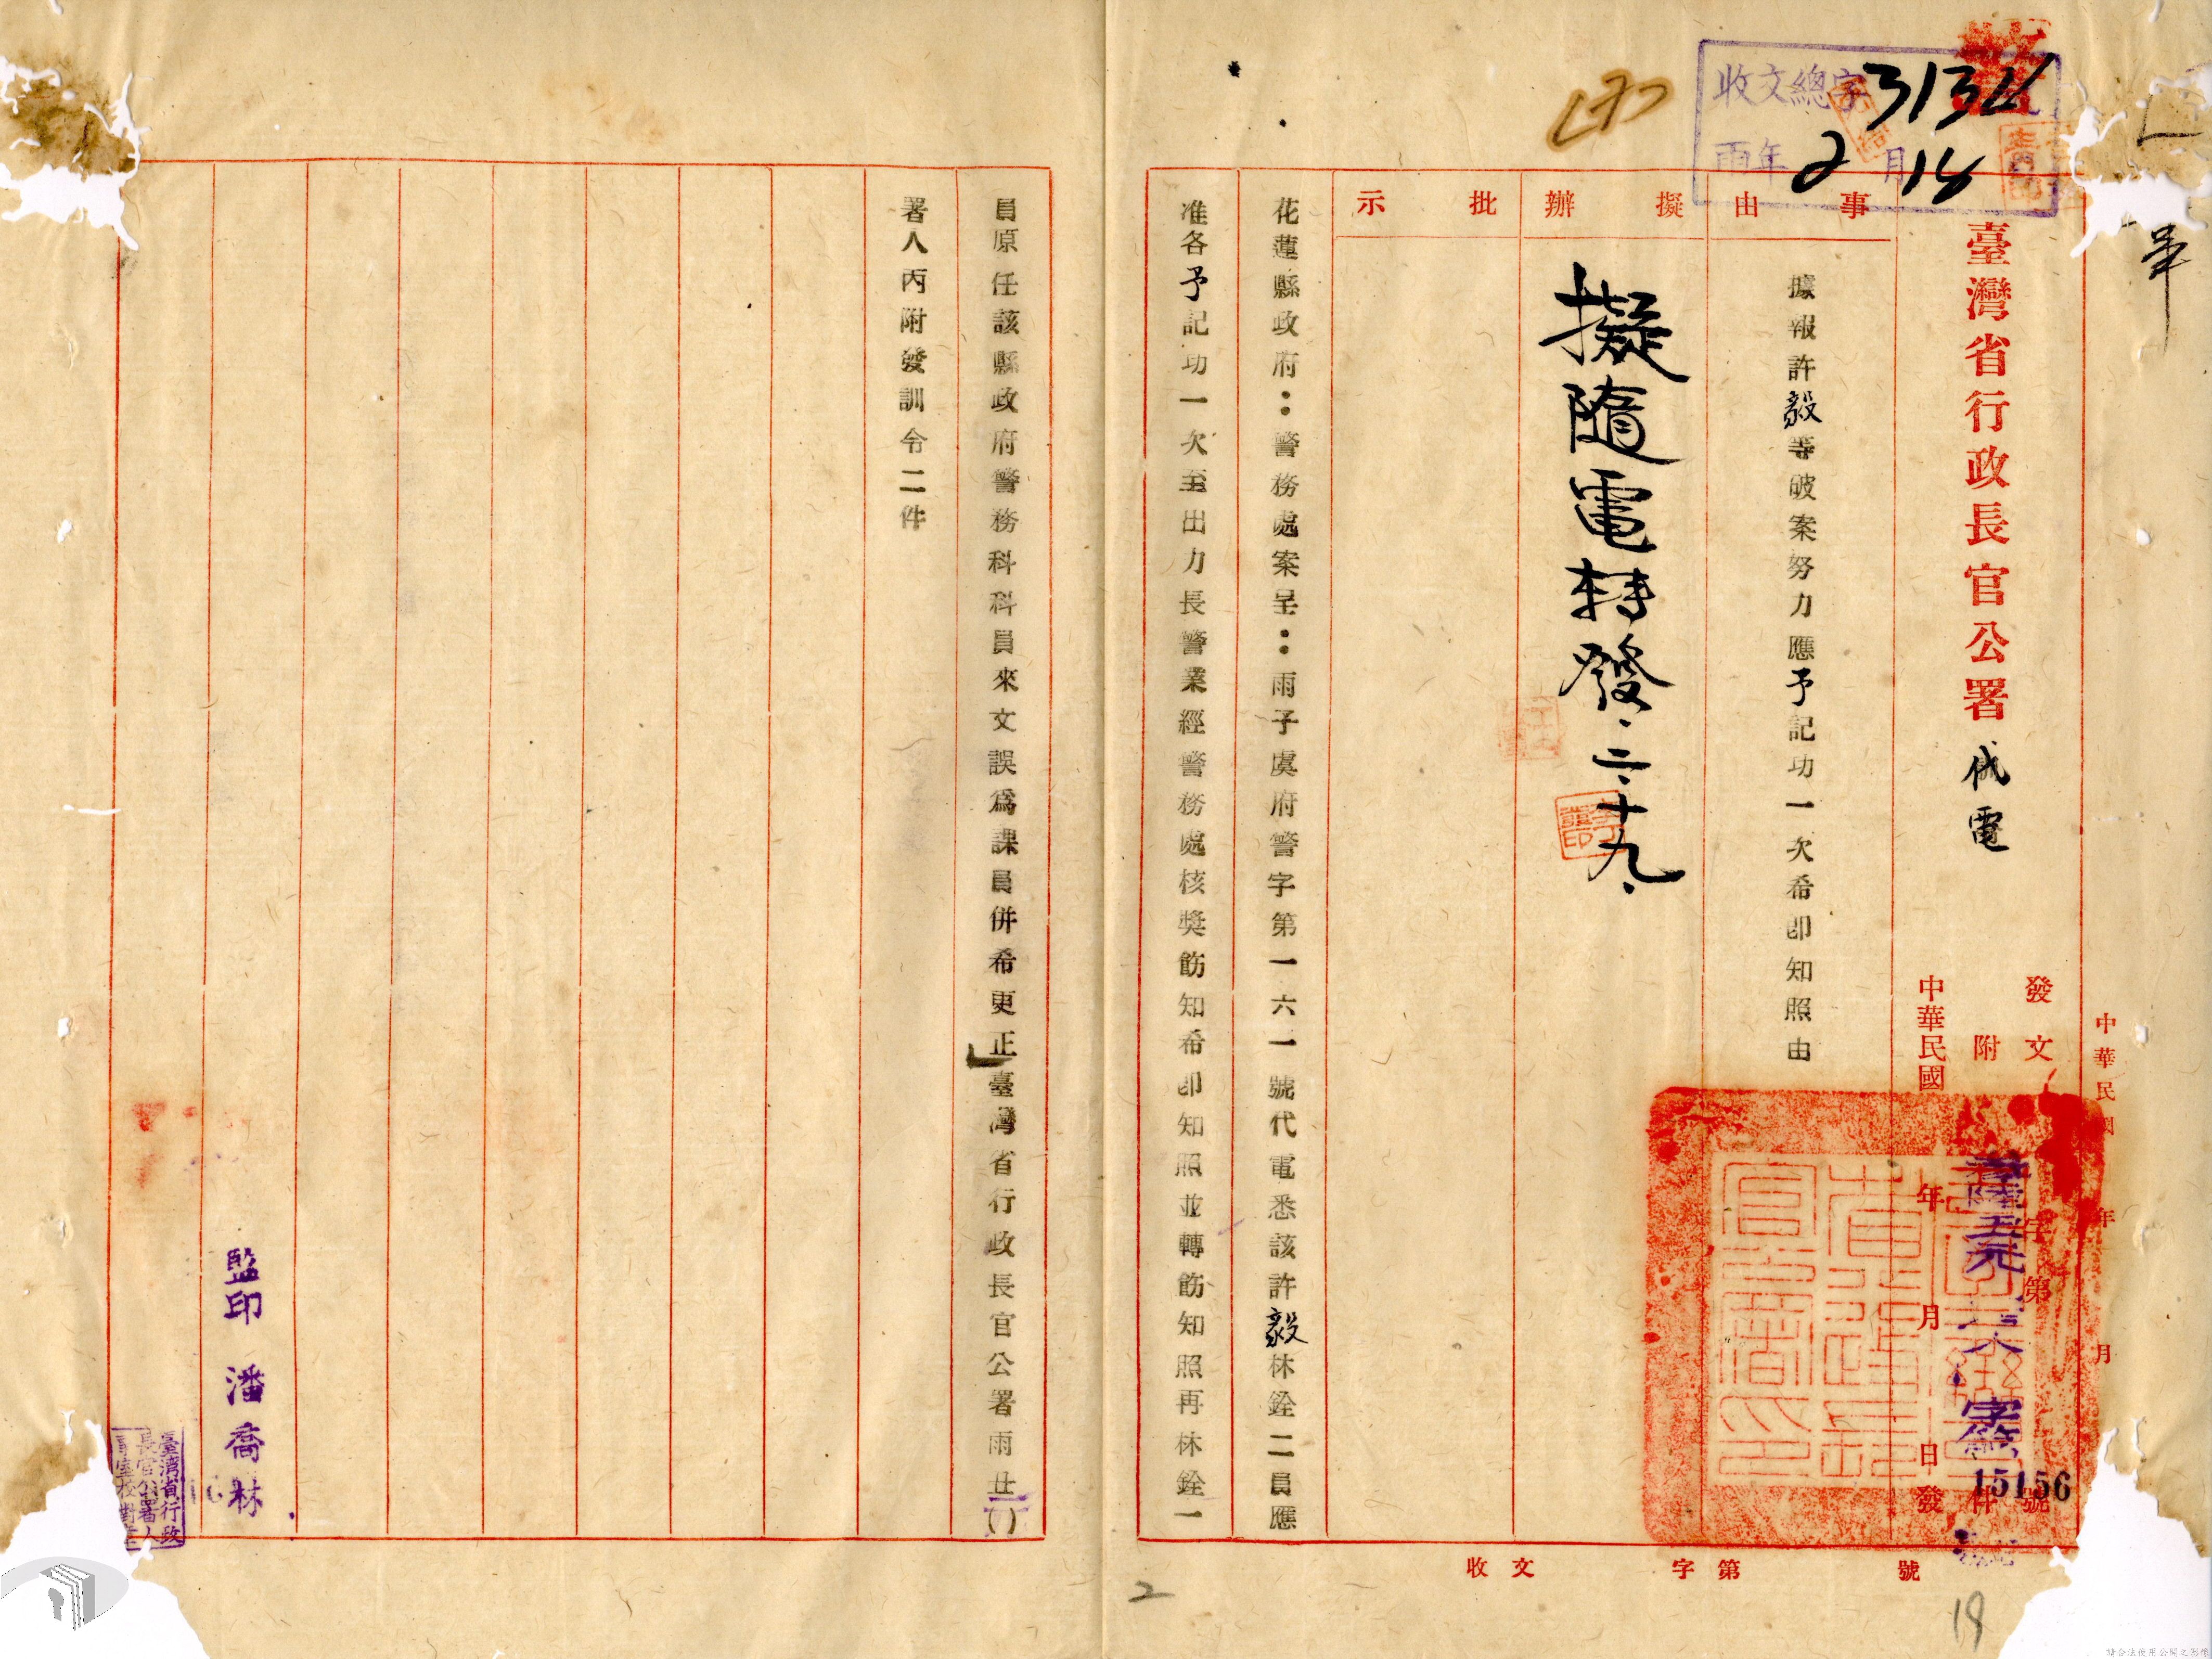 收文總字3134
雨年2月18
臺灣省行政長官公署代電
發文 字第 號
附 件
中華民國 年 月 日發
中華民國 年 月
15156
事由
據報許毅等破案努力應予記功一次希即知照由
擬辦
擬隨電轉發.二.十九.
批示
花蓮縣政府:警務處案呈:雨子虞府警字第一六一號代電悉該許毅林銓二員應
准各予記功一次至出力長警業經警務處核獎飭知希即知照並轉飭知照再林銓一
收文 字第 號
2
18
員原任該縣政府警務科科員來文誤為課員併希更正臺灣省行政長官公署雨丑()
署人丙附發訓令二件
監印 潘喬林
臺灣省行政
長官公署人
請合法使用公開之影像